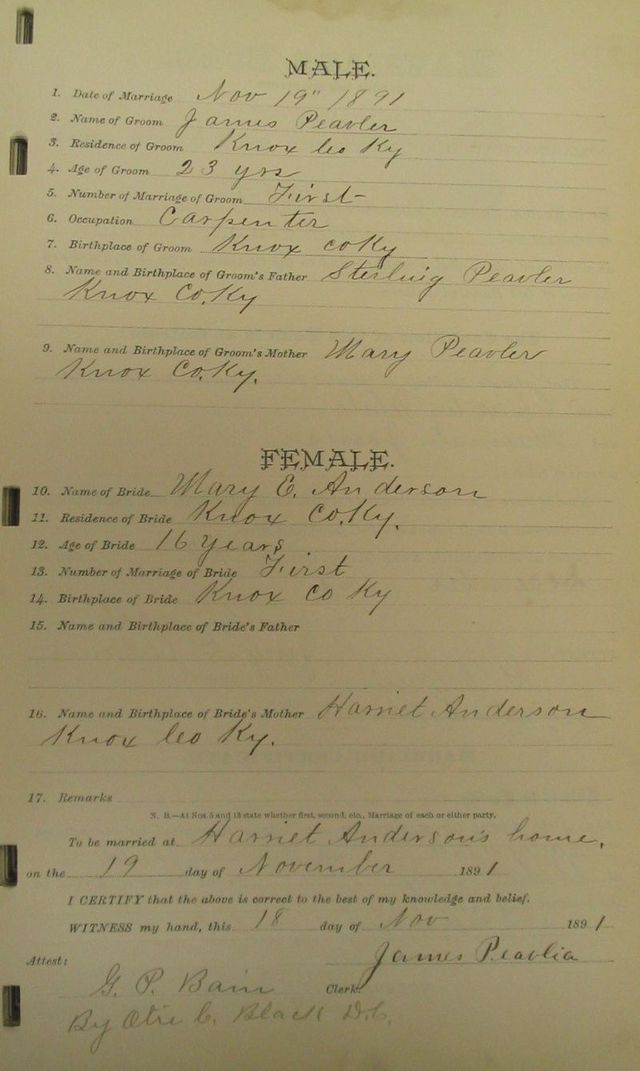 MALE.
1. Date of Marriage Nov 19" 1891
2. Name of Groom James Peavler
3. Residence of Groom Knox Co Ky
4. Age of Groom 23 yrs
5. Number of Marriage of Groom First
6. Occupation Carpenter
7. Birthplace of Groom Knox Co Ky
8. Name and Birthplace of Groom's Father Sterling Peavler
Knox Co. Ky
9. Name and Birthplace of Groom's Mother Mary Peavler
Knox Co. Ky.
FEMALE.
10. Name of Bride Mary E. Anderson
11. Residence of Bride Knox Co. Ky.
12. Age of Bride 16 years
13. Number of Marriage of Bride First
14. Birthplace of Bride Knox Co Ky
15. Name and Birthplace of Bride's Father
16. Name and Birthplace of Bride's Mother Harriet Anderson
Knox Co Ky.
17. Remarks
N. B.—At Nos. 5 and 13 state whether first, second, etc., Marriage of each or either party.
To be married at Harriet Anderson's home,
on the 19 day of November 1891
I CERTIFY that the above is correct to the best of my knowledge and belief.
WITNESS my hand, this 18 day of Nov 1891
James Peavlia
Attest:
G. P. Bain Clerk.
By C. Black D.C.